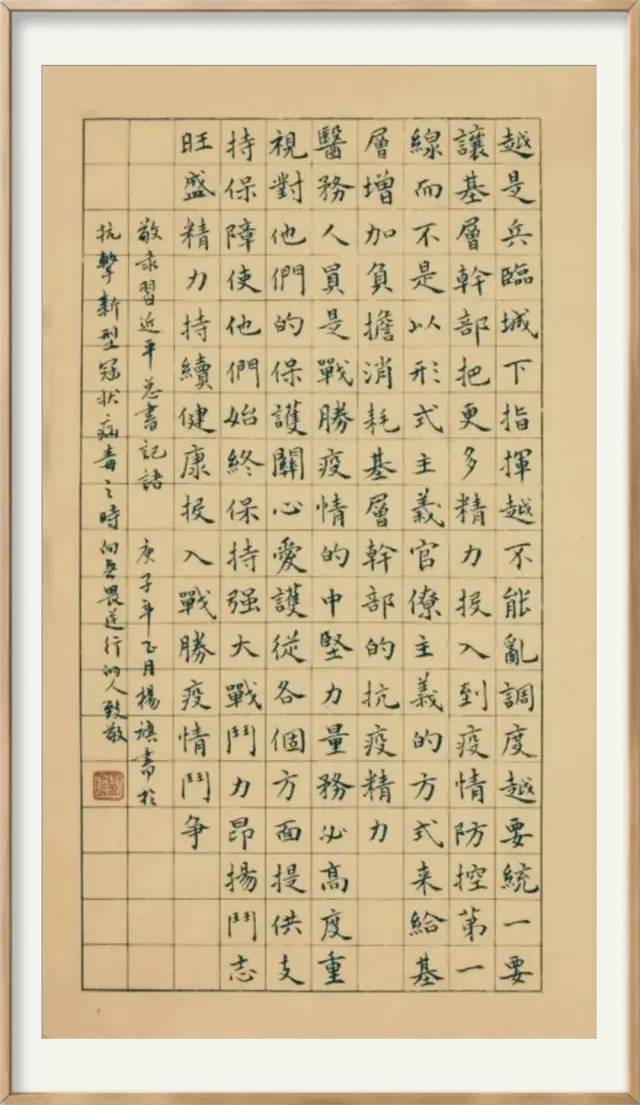 越是兵臨城下指揮越不能亂調度越要統一要
讓基層幹部把更多精力投入到疫情防控第一
線而不是以形式主義官僚主義的方式来給基
層增加負擔消耗基層幹部的抗疫精力
醫務人員是戰勝疫情的中堅力量務必高度重
視對他們的保護關心愛護從各個方面提供支
持保障使他們始終保持强大戰鬥力昂揚鬥志
旺盛精力持續健康投入戰勝疫情鬥争
敬录習近平总書記語 庚子年正月楊書於
抗擊新型冠状病毒之時向无畏逆行的人致敬